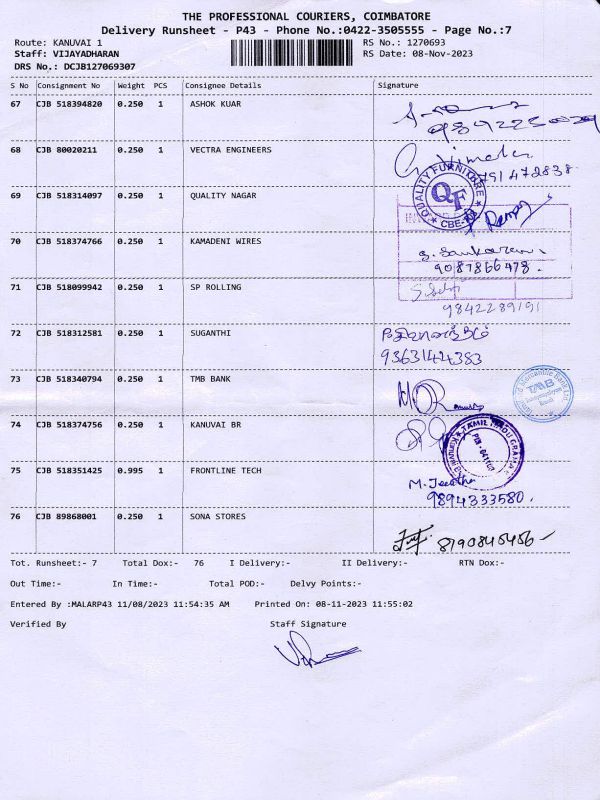 THE PROFESSIONAL COURIERS, COIMBATORE
Delivery Runsheet - P43 - Phone No.:0422-3505555 - Page No.:7
Route: KANUVAI 1 RS No.: 1270693
Staff: VIJAYADHARAN RS Date: 08-Nov-2023
DRS No.: DCJB127069307
S No Consignment No Weight PCS Consignee Details Signature
67 CJB 518394820 0.250 1 ASHOK KUAR
68 CJB 80020211 0.250 1 VECTRA ENGINEERS
QUALITY FURNITURE
QF
CBE
69 CJB 518314097 0.250 1 QUALITY NAGAR
70 CJB 518374766 0.250 1 KAMADENI WIRES S. Sankaran.
9087866478.
71 CJB 518099942 0.250 1 SP ROLLING
9842289191
72 CJB 518312581 0.250 1 SUGANTHI
9363142383
73 CJB 518340794 0.250 1 TMB BANK
TMB
74 CJB 518374756 0.250 1 KANUVAI BR
TAMIL NADU GRAMA
75 CJB 518351425 0.995 1 FRONTLINE TECH
9894333580.
76 CJB 89868001 0.250 1 SONA STORES
8190845456
Tot. Runsheet:- 7 Total Dox:- 76 I Delivery:- II Delivery:- RTN Dox:-
Out Time:- In Time:- Total POD:- Delvy Points:-
Entered By :MALARP43 11/08/2023 11:54:35 AM Printed On: 08-11-2023 11:55:02
Verified By Staff Signature